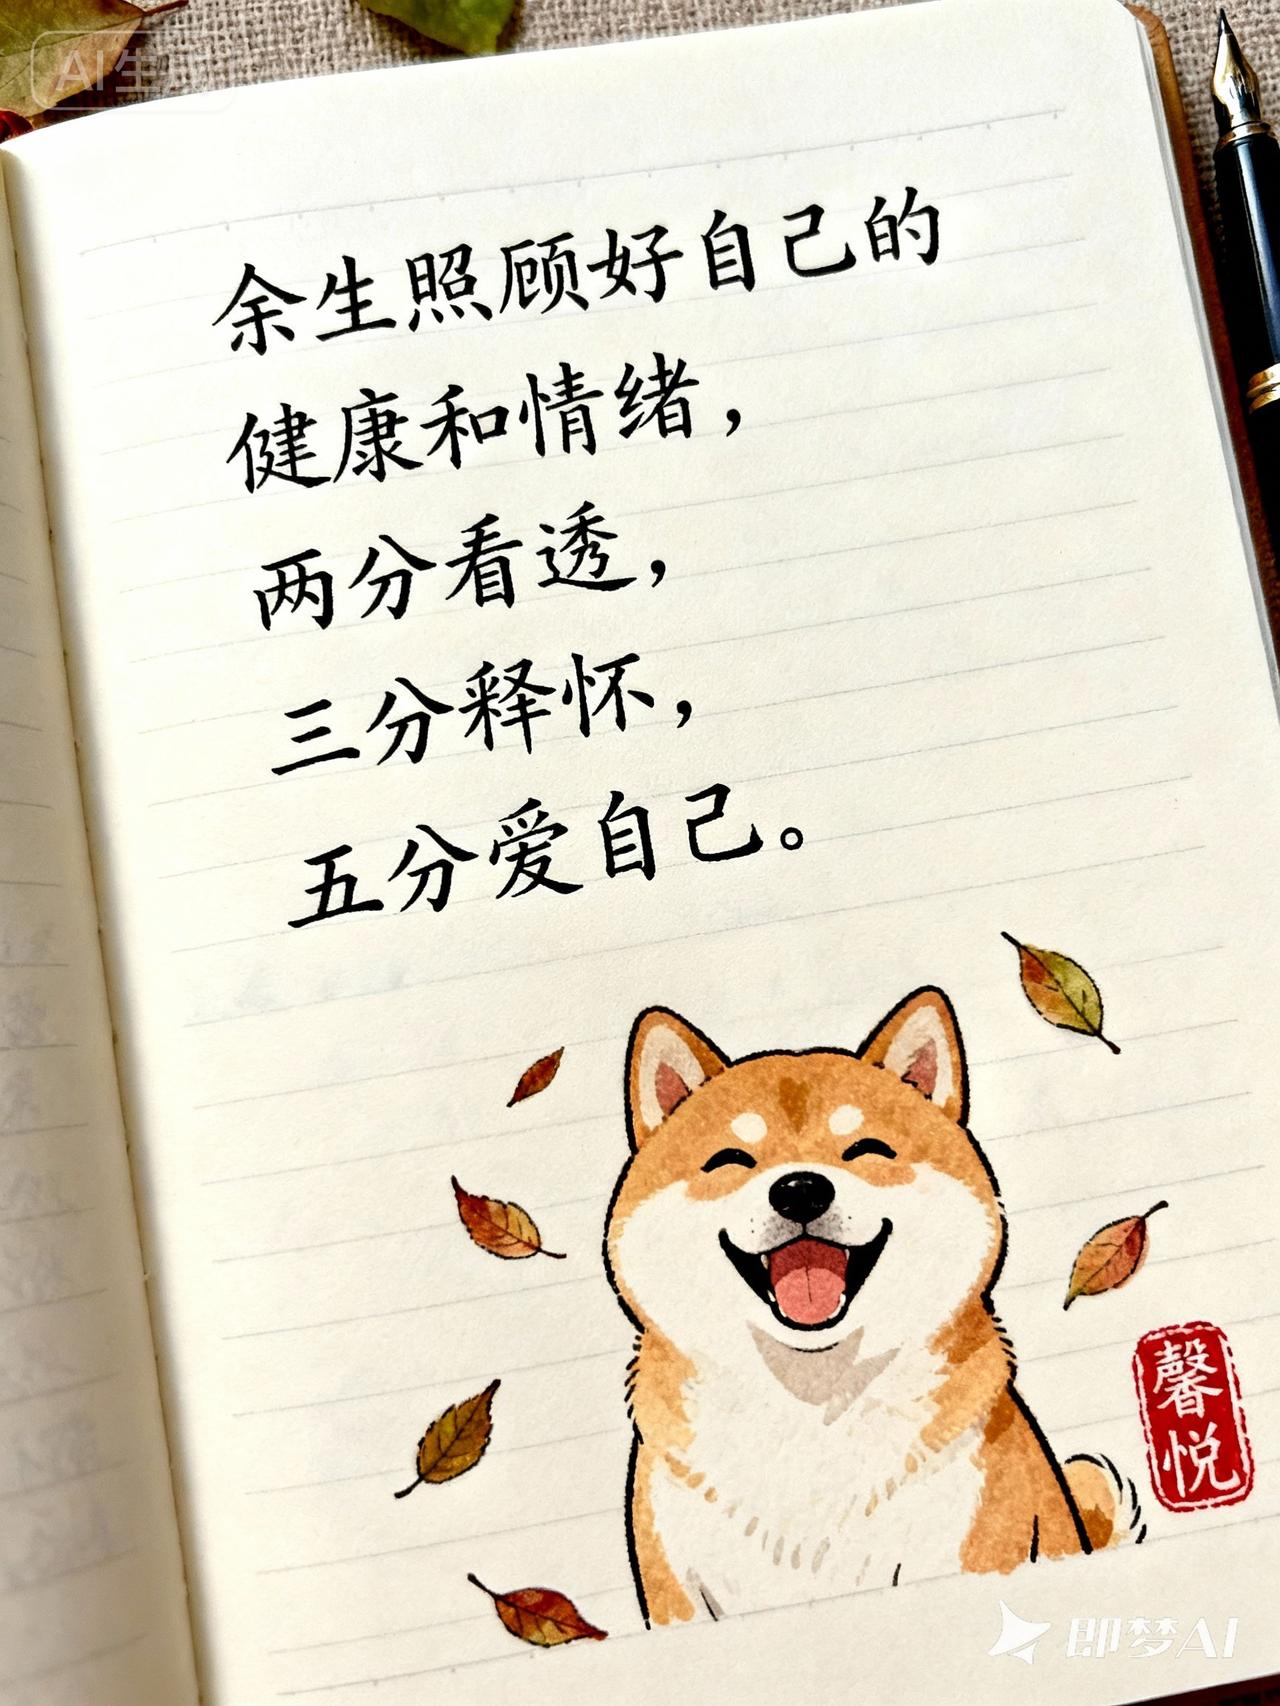 AI生成
余生照顾好自己的
健康和情绪，
两分看透，
三分释怀，
五分爱自己。
馨悦
即梦AI